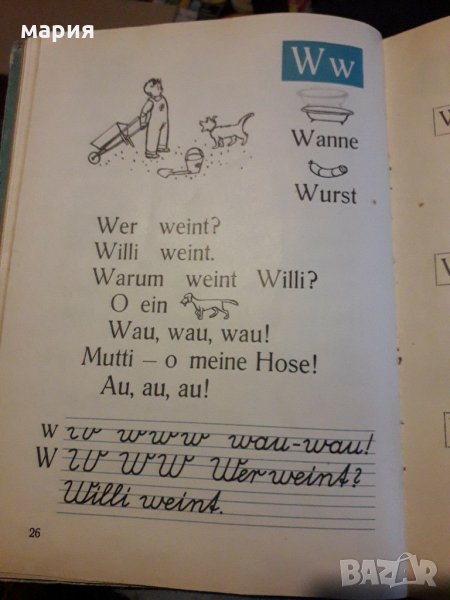 мария
W w
Wanne
Wurst
Wer weint?
Willi weint.
Warum weint Willi?
O ein
Wau, wau, wau!
Mutti – o meine Hose!
Au, au, au!
w w w w w wau-wau!
W W W W Wer weint?
Willi weint.
26
BAZAR